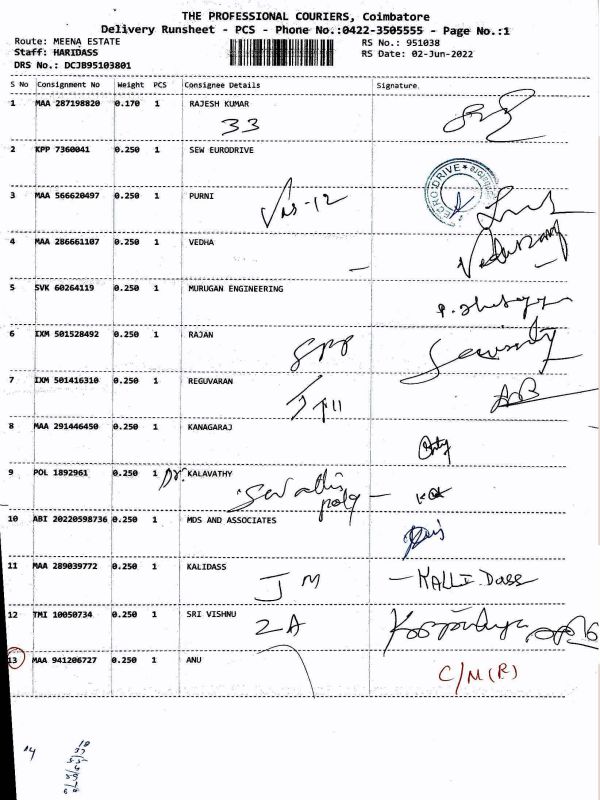 THE PROFESSIONAL COURIERS, Coimbatore
Delivery Runsheet - PCS - Phone No.:0422-3505555 - Page No.:1
Route: MEENA ESTATE
Staff: HARIDASS
DRS No.: DCJB95103801
RS No.: 951038
RS Date: 02-Jun-2022
S No Consignment No Weight PCS Consignee Details Signature
1 MAA 287198820 0.170 1 RAJESH KUMAR
33
2 KPP 7360041 0.250 1 SEW EURODRIVE
3 MAA 566620497 0.250 1 PURNI
4 MAA 286661107 0.250 1 VEDHA
5 SVK 60264119 0.250 1 MURUGAN ENGINEERING
6 IXM 501528492 0.250 1 RAJAN
Security
7 IXM 501416310 0.250 1 REGUVARAN
8 MAA 291446450 0.250 1 KANAGARAJ
9 POL 1892961 0.250 1 Dr. KALAVATHY
10 ABI 20220598736 0.250 1 MDS AND ASSOCIATES
11 MAA 289039772 0.250 1 KALIDASS
J M - KALLI.Dass
12 TMI 10050734 0.250 1 SRI VISHNU
2A
13 MAA 941206727 0.250 1 ANU
C/M(R)
14